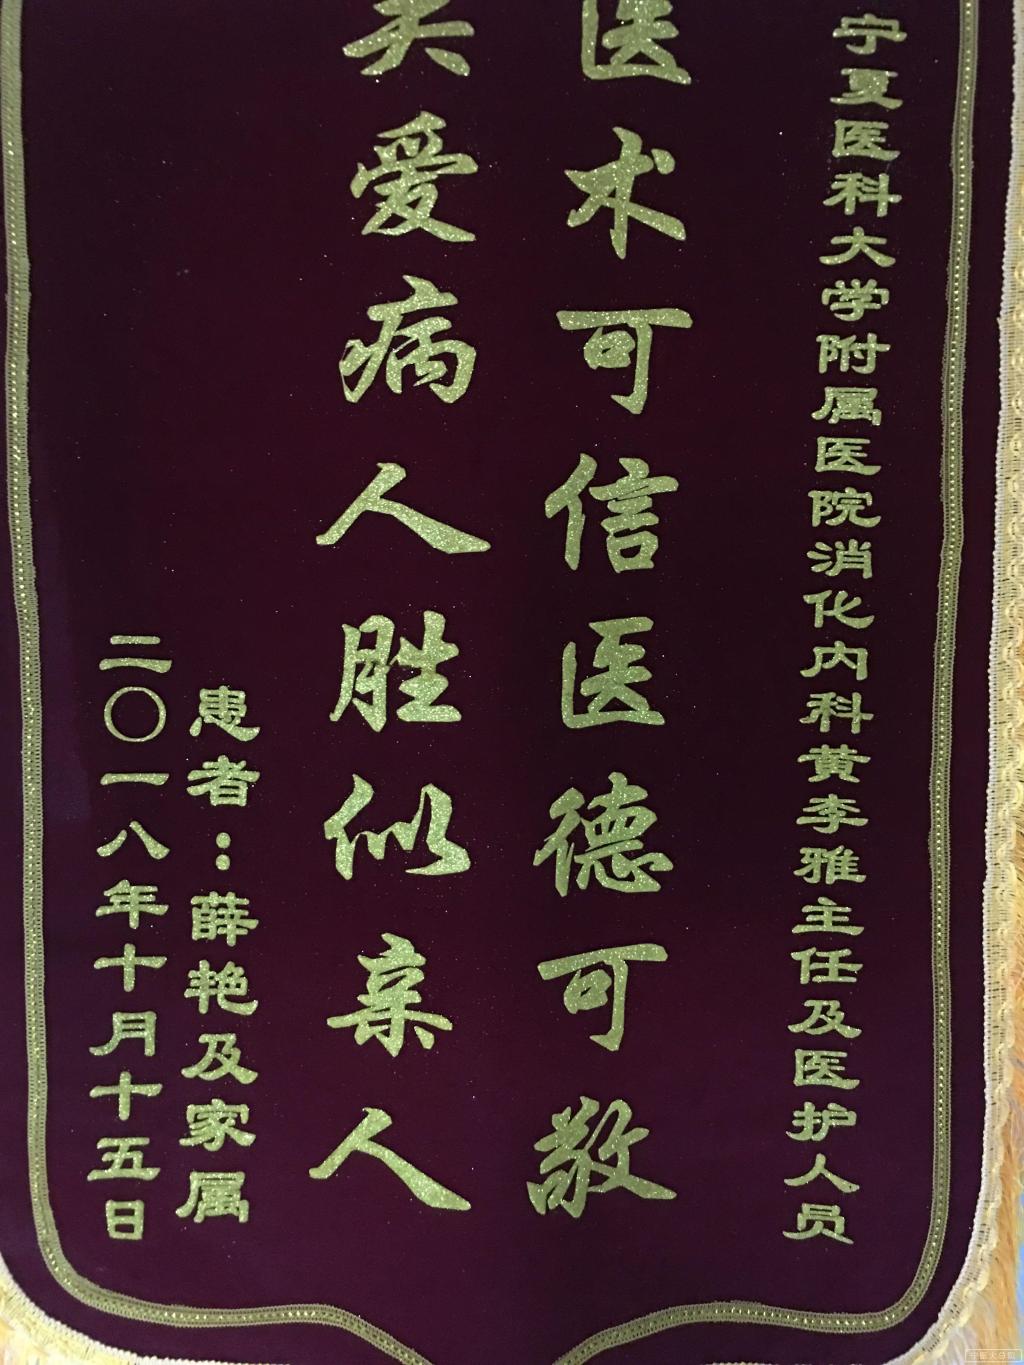 宁夏医科大学附属医院消化内科黄李雅主任及医护人员
医术可信医德可敬
关爱病人胜似亲人
患者：薛艳及家属
二〇一八年十月十五日